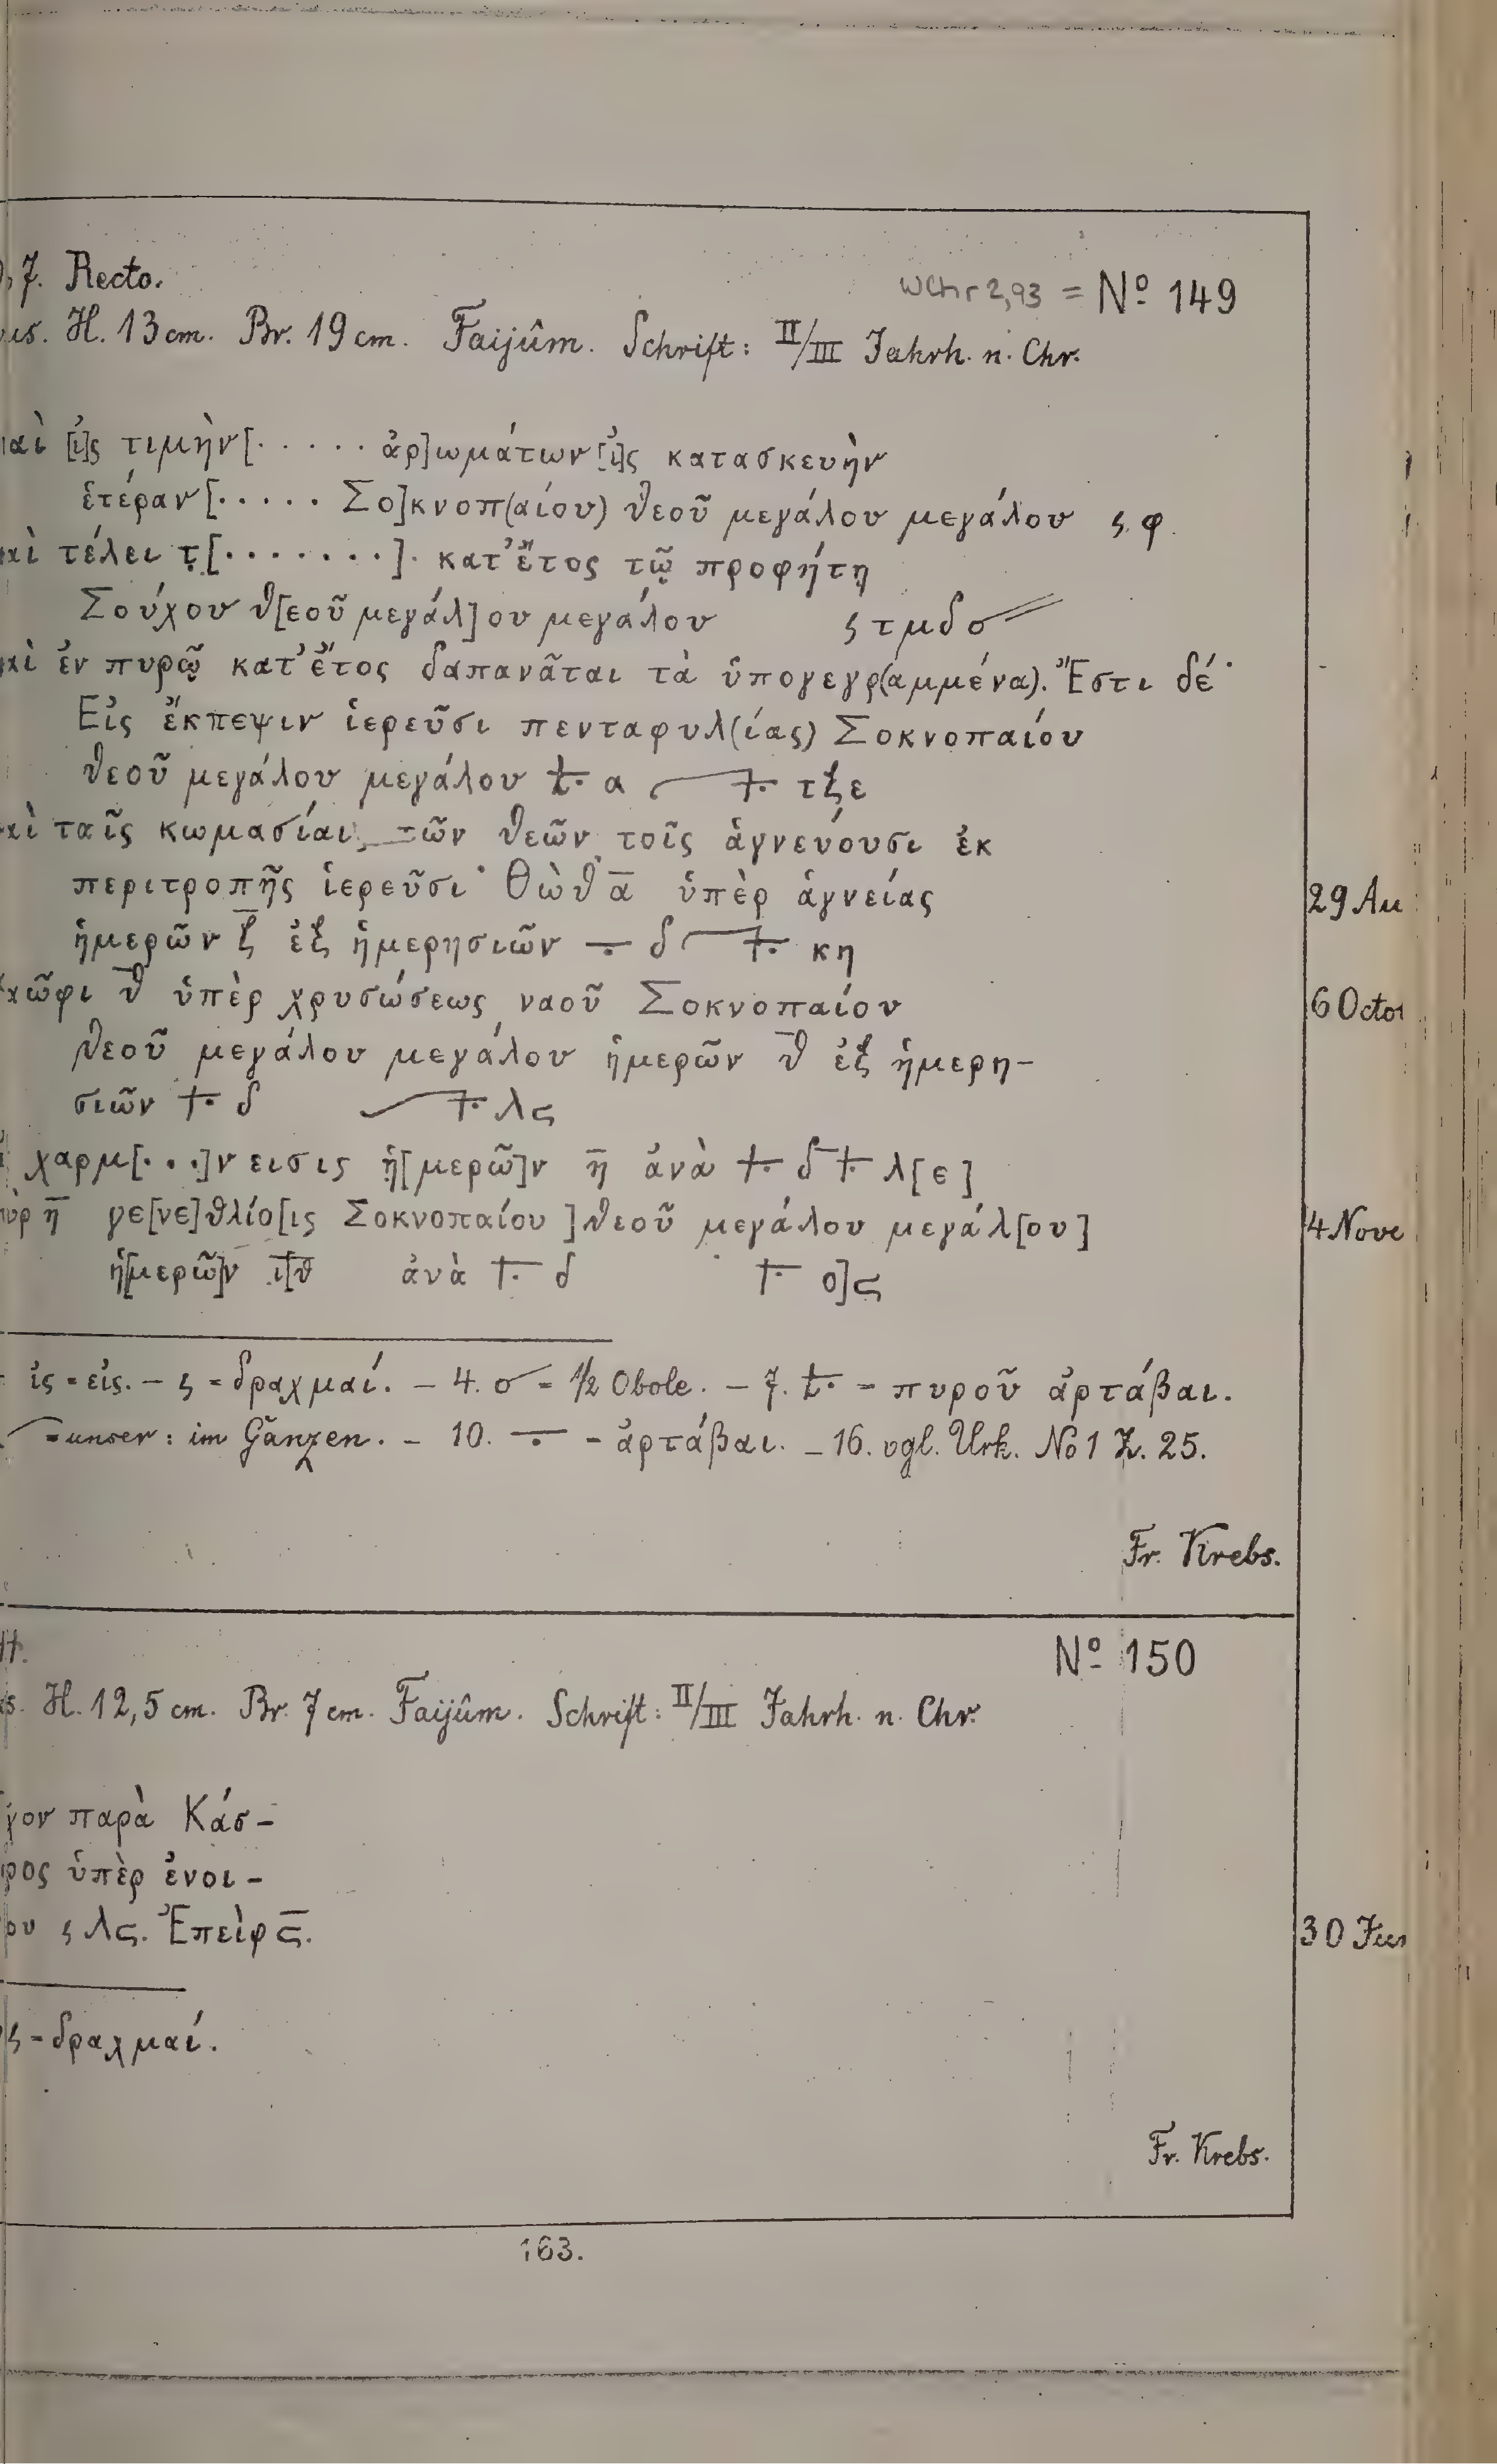 7. Recto.
WChr 2,93 = Nº 149
H. 13 cm. Br. 19 cm. Faijûm. Schrift: II/III Jahrh. n. Chr.
[ἰ]ς τιμὴν [· · · · · ἀρ]ωμάτων [ἰ]ς κατασκευὴν
ἑτέραν [· · · · · Σο]κνοπ(αίου) θεοῦ μεγάλου μεγάλου ϛ φ.
τέλει τ̣[· · · · · · · ]· κατ' ἔτος τῷ προφήτῃ
Σούχου θ[εοῦ μεγάλ]ου μεγάλου ϛ τμδ σ //
ἐν πυρῷ κατ' ἔτος δαπανᾶται τὰ ὑπογεγρ(αμμένα). Ἔστι δέ·
Εἰς ἔκπεψιν ἱερεῦσι πενταφυλ(ίας) Σοκνοπαίου
θεοῦ μεγάλου μεγάλου α τξε
ταῖς κωμασίαις τῶν θεῶν τοῖς ἁγνεύουσι ἐκ
περιτροπῆς ἱερεῦσι· Θὼθ α̅ ὑπὲρ ἁγνείας 29 Au
ἡμερῶν ζ̅ ἐξ ἡμερησιῶν ∸ δ κη
ὑπὲρ χρυσώσεως ναοῦ Σοκνοπαίου 6 Octo
θεοῦ μεγάλου μεγάλου ἡμερῶν θ̅ ἐξ ἡμερη-
σιῶν δ λϛ
χαρμ[· · ·]ν εισις ἡ[μερῶ]ν η̅ ἀνὰ δ λ[ε]
η̅ γε[νε]θλίο[ις Σοκνοπαίου] θεοῦ μεγάλου μεγάλ[ου] 4 Nove
ἡ[μερῶ]ν ι[θ ἀνὰ δ ο]ϛ
ἰς = εἰς. – ϛ = δραχμαί. – 4. σ = ½ Obole. – 7. = πυροῦ ἀρτάβαι.
= unser: im Ganzen. – 10. ∸ = ἀρτάβαι. – 16. vgl. Urk. No 1 Z. 25.
Fr. Krebs.
Nº 150
H. 12,5 cm. Br. 7 cm. Faijûm. Schrift: II/III Jahrh. n. Chr.
παρὰ Κάσ-
ὑπὲρ ἐνοι-
ϛ λϛ. Ἐπεὶφ ϛ̅. 30 Jun
ϛ = δραχμαί.
Fr. Krebs.
163.